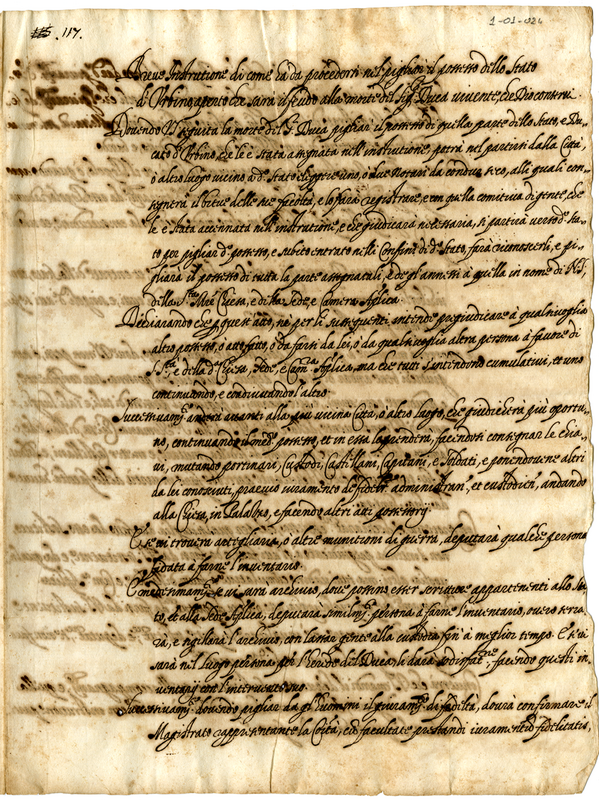 1-01-026
115. 117.
Breve Instrutione di come hà da procedersi nel pigliar il possesso dello Stato
d'Urbino aperto che sarà il feudo alla morte del Sig.r Duca vivente, che Dio conservi.
Dovendo V.S. seguita la morte del S.r Duca pigliar il possesso di quella parte dello stato, e Du-
cato d'Urbino, che le è stata assegnata nell'instrutione, potrà nel partirsi dalla Città,
ò altro luogo vicino à d.º Stato eleggere uno, ò due Notari da condur seco, alli quali con-
segnerà il breve delle sue facoltà, e lo farà registrare, e con quella comitiva di gente, che
le è stata accennata nell'instruttione, e che giudicarà necessaria, si partirà verso d.º sta-
to per pigliar d.º possesso, e subito entrato nelli Confini di d.º Stato, farà riconoscerli, e pi-
gliarà il possesso di tutta la parte assegnatali, e de gl'annessi à quella in nome di N.S.
della S.ta Mre Chiesa, e di sua Sede, e Camera Aplica.
Dechiarando che p questo atto, nè per li susseguenti intende pregiudicare à qualsivoglia
altro possesso, ò atto fatto, ò da farsi da lei, ò da qualsivoglia altra persona à favore di
S. S.tà della d.ª Chiesa, Sede, e Cam.ra Aplica, ma che tutti s'intendono cumulativi, et uno
continuando, e coadiuvando l'altro.
Successivam.te andarà avanti alla più vicina Città, ò altro luogo, che giudicherà più oportu-
no, continuando il med.º possesso, et in essa lo prenderà, facendosi consegnar le chia-
vi, mutando portinari, Custodi, Castellani, Capitani, e Soldati, e ponendovene altri
da lei conosciuti, praevio iuramento de fideliter administran.do et custodien.do, andando
alla Chiesa, in Palazzo, e facendo altri atti possessorij.
E se vi troverà artegliaria, ò altre munitioni di guerra, deputarà qualche persona
fidata à farne l'inventario.
E medesimam.te se vi sarà archivio, dove possino esser scritture appartenenti allo Sta-
to, et alla Sede Aplica, deputarà similm.te persona à farne l'inventario, overo serra-
rà, e sigillarà l'archivio, con lassar gente alla custodia fin' à meglior tempo. E se vi
sarà nel luogo persona per l'herede del Duca, li darà sodisfat.ne, facendo questi in-
ventarij con l'intervento suo.
Successivam.te dovendo pigliar da gl'huomini il giuram.to di fedeltà, dovrà confirmare il
Magistrato rappresentante la Coità, cum facultate prestandi iuramentum fidelitatis,